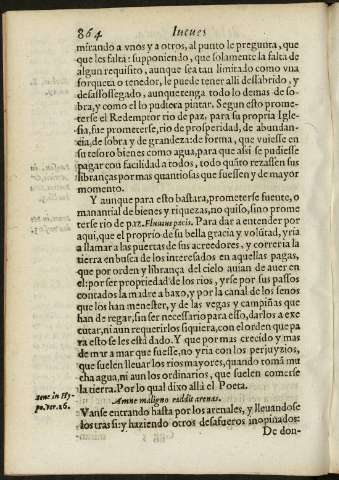 864 Iueues
mirando a vnos y a otros, al punto le pregunta, que
que les falta: suponiendo, que solamente la falta de
algun requisito, aunque sea tan limitado como vna
forqueta o tenedor, le puede tener alli dessabrido, y
desassossegado, aunque tenga todo lo demas de so-
bra, y como el lo pudiera pintar. Segun esto prome-
terse el Redemptor rio de paz, para su propria Igle-
sia, fue prometerse, rio de prosperidad, de abundan-
cia, de sobra y de grandeza: de forma, que viuesse en
su tesoro bienes como agua, para que assi se pudiesse
pagar con facilidad a todos, todo quãto rezassen sus
libranças por mas quantiosas que fuessen y de mayor
momento.
Y aunque para esto bastara, prometerse fuente, o
manantial de bienes y riquezas, no quiso, sino prome
terse rio de paz. Fluuius pacis. Para dar a entender por
aqui, que el proprio de su bella gracia y volũtad, yria
a llamar a las puertas de sus acreedores, y correria la
tierra en busca de los interesados en aquellas pagas,
que por orden y librança del cielo auian de auer en
el: por ser propriedad de los rios, yrse por sus passos
contados la madre a baxo, y por la canal de los senos
que los han menester, y de las vegas y campiñas que
han de regar, sin ser necessario para esso, darlos a exe
cutar, ni aun requerirlos siquiera, con el orden que pa
ra esto se les està dado. Y que por mas crecido y mas
de mar a mar que fuesse, no yria con los perjuyzios,
que suelen lleuar los rios mayores, quando tomã mu
cha agua, ni aun los ordinarios, que suelen comerse
la tierra. Por lo qual dixo allà el Poeta.
Amne maligno reddit arenas.
Sene in Hy-
po. ver. 16.
Vanse entrando hasta por los arenales, y lleuandose
los tras si: y haziendo otros desafueros inopinados:
De don-